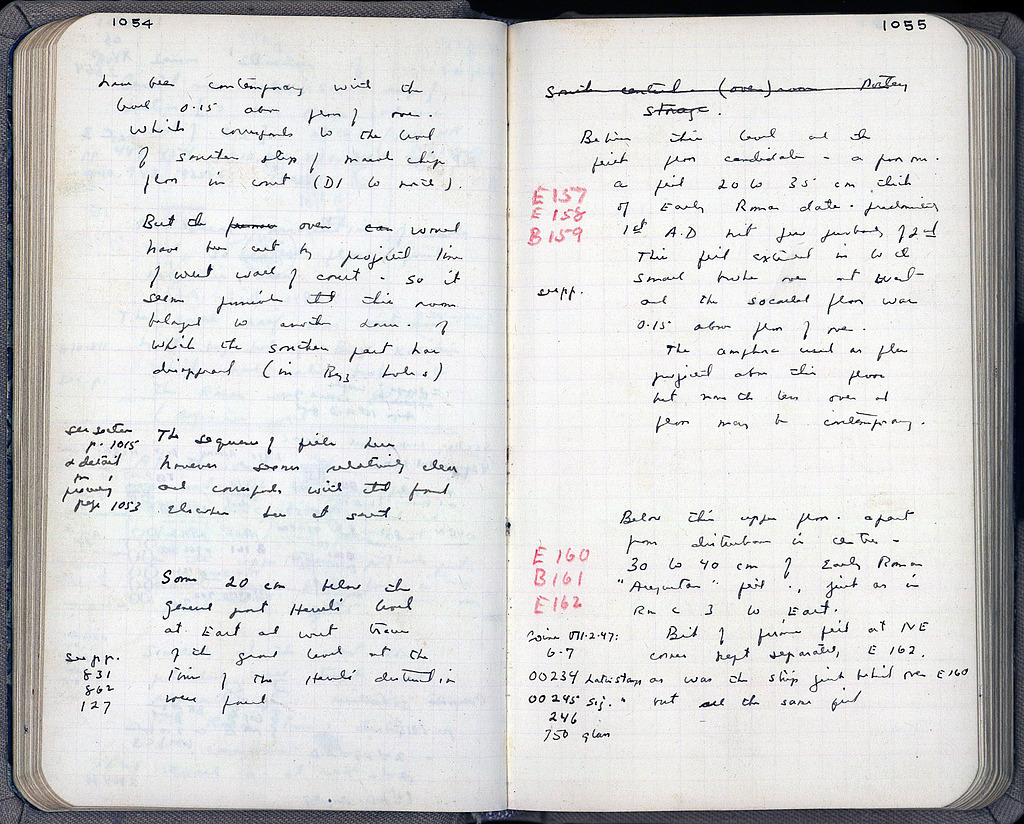 1054
have been contemporary with the
level 0.15 above floor of oven.
which corresponds to the level
of southern strip of marble chip
floor in court (D1 to north).
But the oven would
have been cut by projected line
of west wall of court - so it
seems possible that this room
belonged to another house. of
which the southern part has
disappeared (in holes)
see section
p. 1015
& detail
on
preceding
page 1053
The sequence of fills here
however seems relatively clear
and corresponds with that found
elsewhere here at south.
Some 20 cm below the
general post Heruli level
at East and west traces
of the ground level at the
time of the Heruli destruction
were found
see pp.
831
862
127
1055
South central (oven) room Pottery
storage.
Below this level and the
first floor candidate - a floor one.
a fill 20 to 35 cm thick
of Early Roman date - predominantly
1st A.D with few of 2nd
This fill extended in to the
small broken oven at West
and the second floor was
0.15 above floor of oven.
The amphora used as flue
projected above this floor
but none the less oven and
floor may be contemporary.
E 157
E 158
B 159
see pp.
Below this upper floor. apart
from disturbance in centre -
30 to 40 cm of Early Roman
"Augustan" fill, just as in
Rm C 3 to East.
E 160
B 161
E 162
Bit of fill at NE
corner kept separately, E 162.
as was the strip just behind oven E 160
but all the same fill
Coins VII-2-47:
6-7
00234 Latin stamp
00245 sig. "
246
750 glass